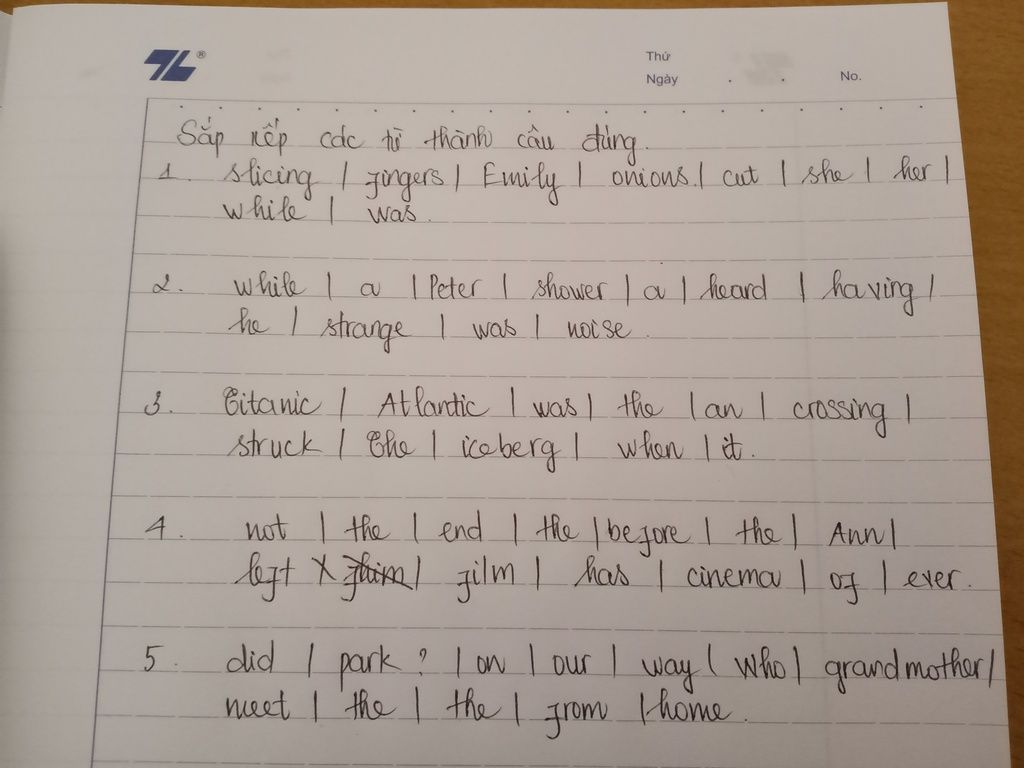 TL®
Thứ
Ngày . . No.
Sắp xếp các từ thành câu đúng.
1. slicing / fingers / Emily / onions / cut / she / her /
while / was.
2. while / a / Peter / shower / a / heard / having /
he / strange / was / noise.
3. Titanic / Atlantic / was / the / an / crossing /
struck / The / iceberg / when / it.
4. not / the / end / the / before / the / Ann /
left / film / has / cinema / of / ever.
5. did / park? / on / our / way / Who / grandmother /
meet / the / the / from / home.